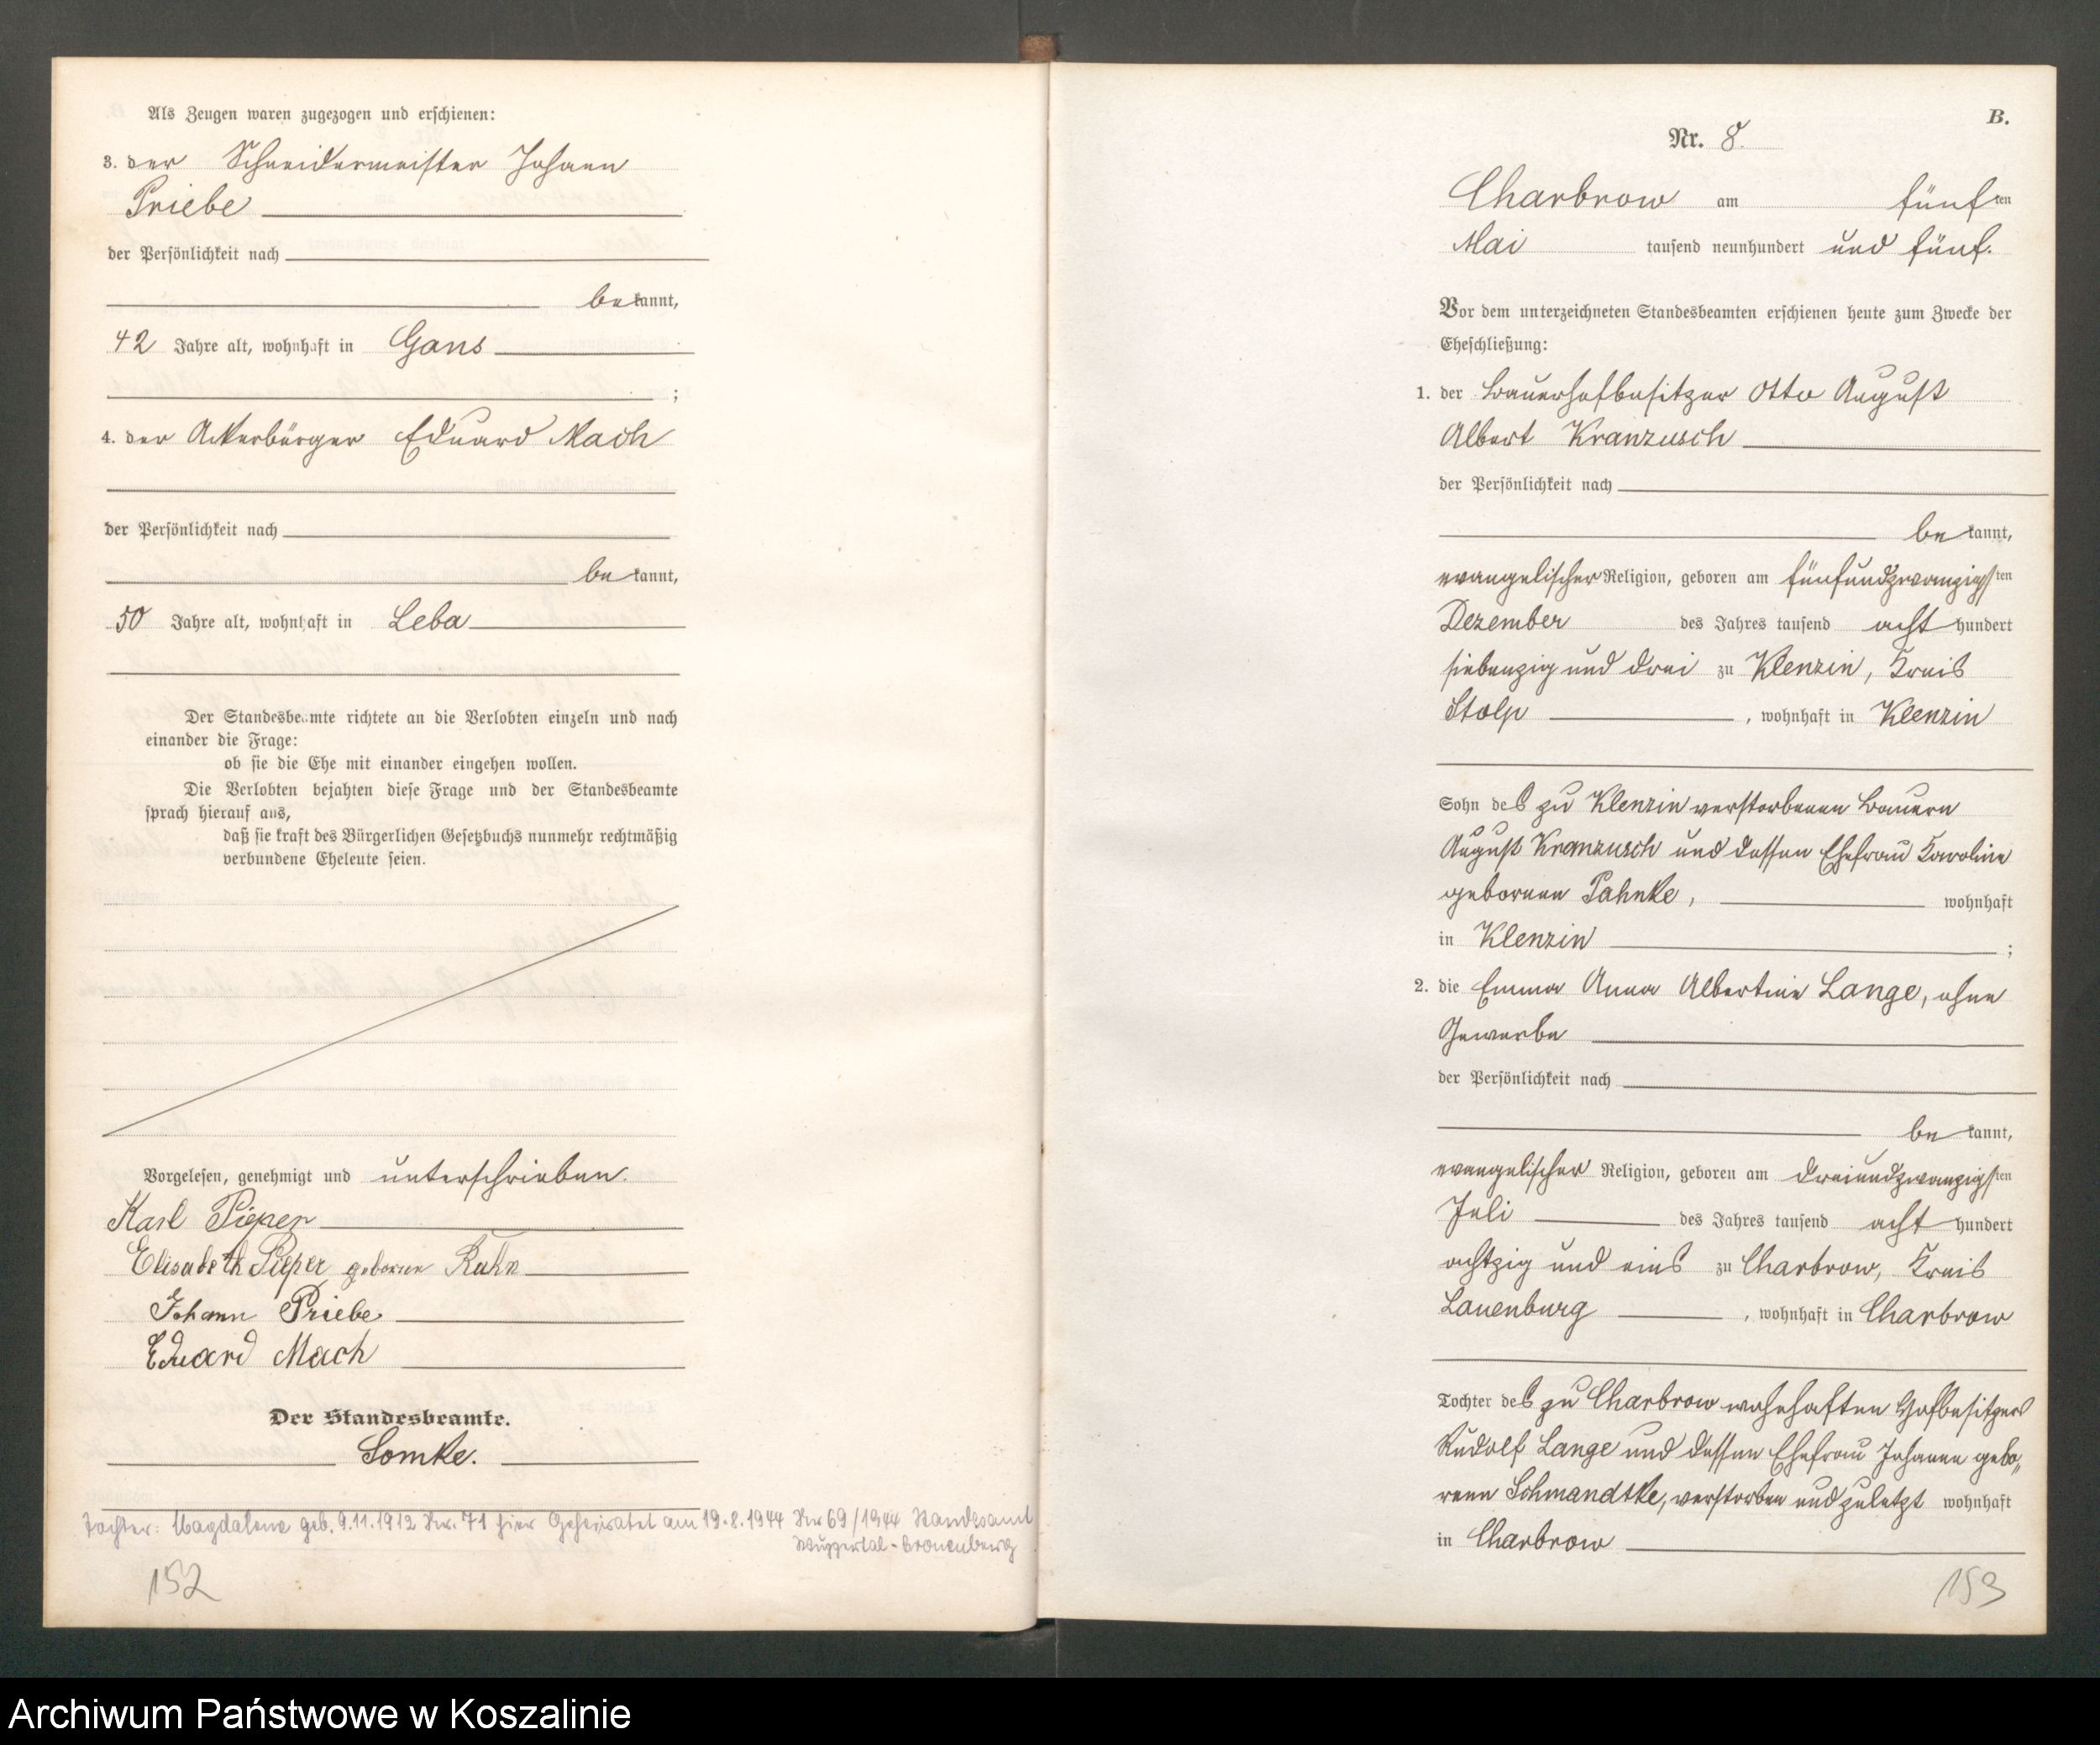 Als Zeugen waren zugezogen und erschienen:
3. der Schneidermeister Johann
Priebe
der Persönlichkeit nach
bekannt,
42 Jahre alt, wohnhaft in Gans
;
4. der Ackerbürger Eduard Mach
der Persönlichkeit nach
bekannt,
50 Jahre alt, wohnhaft in Leba
Der Standesbeamte richtete an die Verlobten einzeln und nach
einander die Frage:
ob sie die Ehe mit einander eingehen wollen.
Die Verlobten bejahten diese Frage und der Standesbeamte
sprach hierauf aus,
daß sie kraft des Bürgerlichen Gesetzbuchs nunmehr rechtmäßig
verbundene Eheleute seien.
Vorgelesen, genehmigt und unterschrieben.
Karl Pieper
Elisabeth Pieper geborene Kuhn
Johann Priebe
Eduard Mach
Der Standesbeamte.
Somke.
Tochter: Magdalene geb. 9.11.1912 Nr. 71 hier Geheiratet am 19.8.1944 Nr 69/1944 Standesamt
Wuppertal-Cronenberg
152
B.
Nr. 8.
Charbrow am fünften
Mai tausend neunhundert und fünf.
Vor dem unterzeichneten Standesbeamten erschienen heute zum Zwecke der
Eheschließung:
1. der Bauerhofbesitzer Otto August
Albert Kranzusch
der Persönlichkeit nach
bekannt,
evangelischer Religion, geboren am fünfundzwanzigsten
Dezember des Jahres tausend achthundert
siebenzig und drei zu Klenzin, Kreis
Stolp, wohnhaft in Klenzin
Sohn des zu Klenzin verstorbenen Bauern
August Kranzusch und dessen Ehefrau Karoline
geborenen Pahnke, wohnhaft
in Klenzin ;
2. die Emma Anna Albertine Lange, ohne
Gewerbe
der Persönlichkeit nach
bekannt,
evangelischer Religion, geboren am dreiundzwanzigsten
Juli des Jahres tausend achthundert
achtzig und eins zu Charbrow, Kreis
Lauenburg, wohnhaft in Charbrow
Tochter des zu Charbrow wohnhaften Hofbesitzers
Rudolf Lange und dessen Ehefrau Johanne gebo„
renen Schmandtke, verstorben und zuletzt wohnhaft
in Charbrow
153
Archiwum Państwowe w Koszalinie